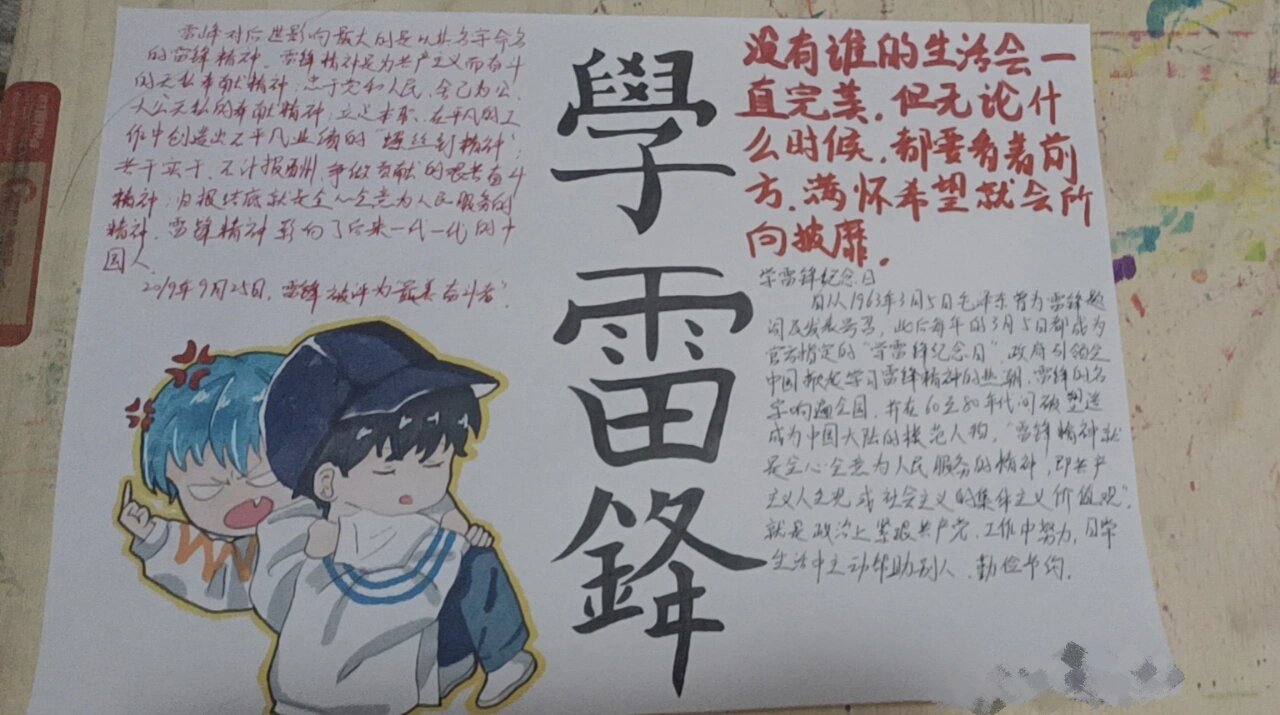 雷锋对后世影响最大的是以其名字命名
的雷锋精神。雷锋精神是为共产主义而奋斗
的无私奉献精神;忠于党和人民、舍己为公、
大公无私的奉献精神;立足本职、在平凡的工
作中创造出不平凡业绩的“螺丝钉精神”;
苦干实干、不计报酬、争做贡献的艰苦奋斗
精神;归根结底就是全心全意为人民服务的
精神。雷锋精神影响了后来一代一代的中
国人。
2019年9月25日,雷锋被评为“最美奋斗者”。
學雷鋒
没有谁的生活会一
直完美,但无论什
么时候,都要看着前
方,满怀希望就会所
向披靡。
学雷锋纪念日
自从1963年3月5日毛泽东曾为雷锋题
词及发表号召,此后每年的3月5日都成为
官方指定的“学雷锋纪念日”,政府引领全
中国掀起学习雷锋精神的热潮,雷锋的名
字响遍全国,并在60至80年代间被塑造
成为中国大陆的模范人物,“雷锋精神就
是全心全意为人民服务的精神,即共产
主义人生观或社会主义的集体主义价值观”,
就是政治上紧跟共产党、工作中努力,日常
生活中主动帮助别人、勤俭节约。